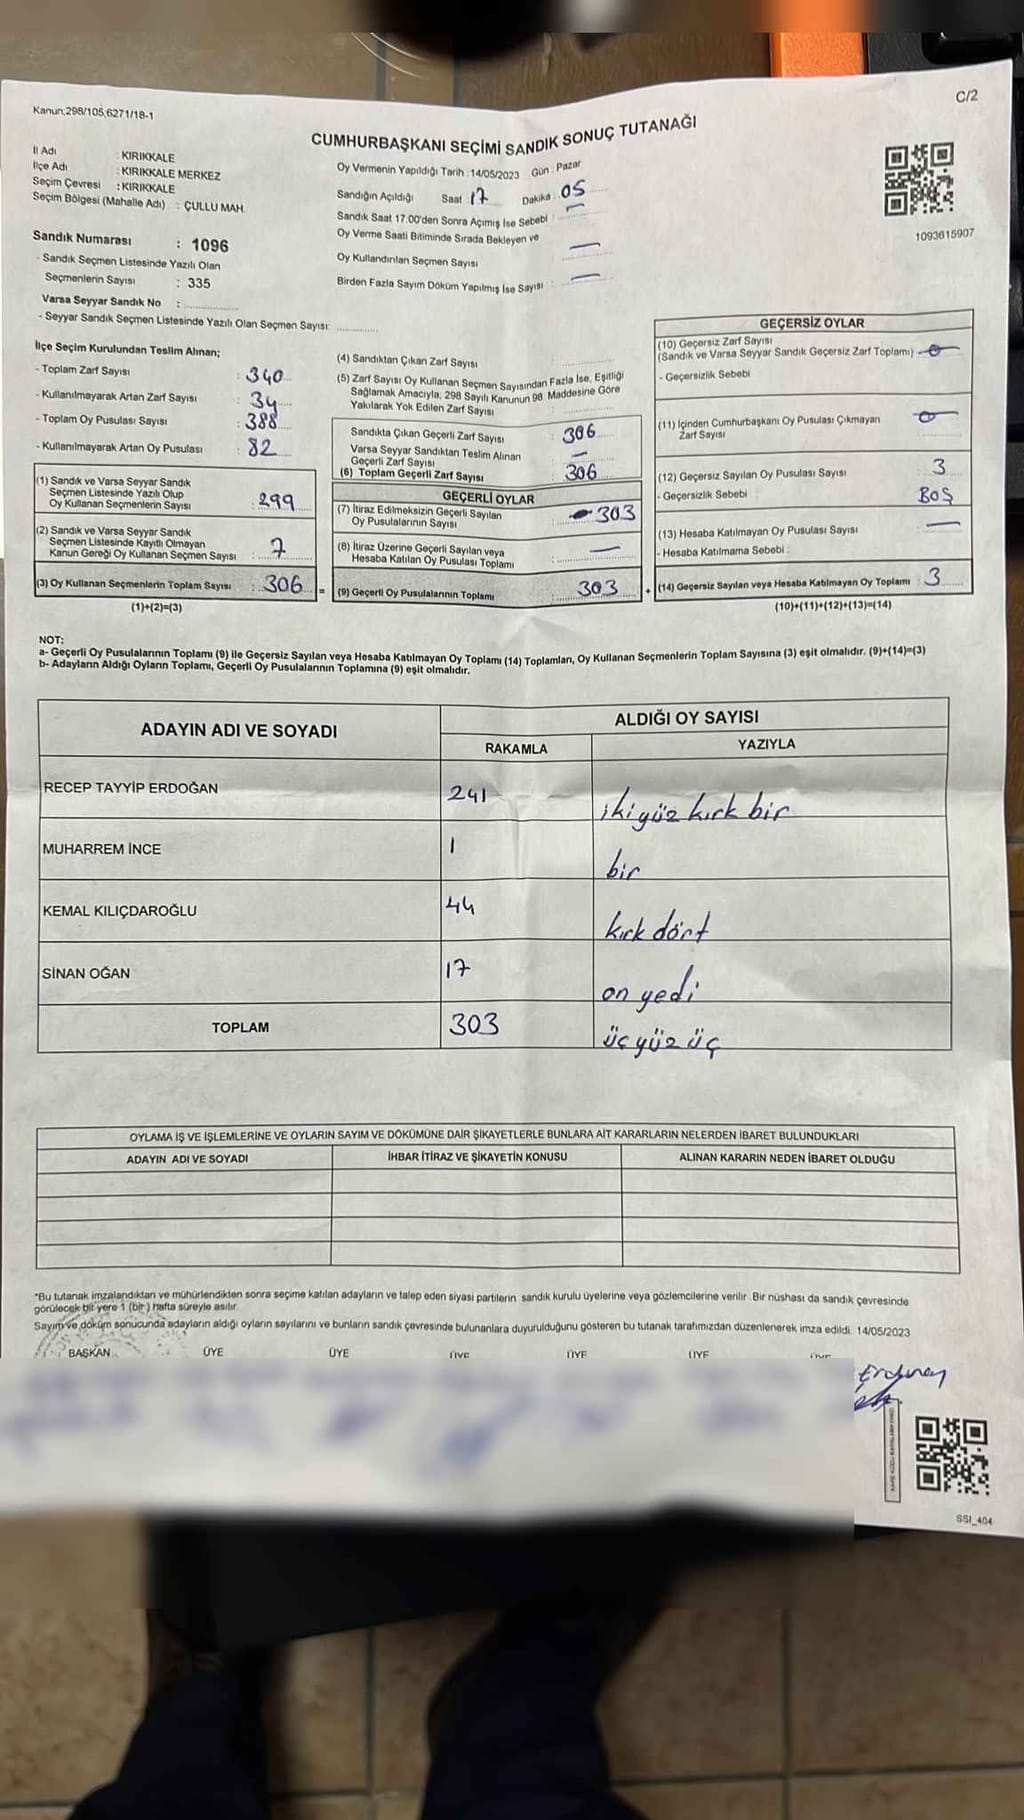 Kanun;298/105,6271/18-1
C/2
CUMHURBAŞKANI SEÇİMİ SANDIK SONUÇ TUTANAĞI
İl Adı : KIRIKKALE
İlçe Adı : KIRIKKALE MERKEZ
Seçim Çevresi : KIRIKKALE
Seçim Bölgesi (Mahalle Adı) : ÇULLU MAH.
Sandık Numarası : 1096
- Sandık Seçmen Listesinde Yazılı Olan
Seçmenlerin Sayısı : 335
Varsa Seyyar Sandık No :
- Seyyar Sandık Seçmen Listesinde Yazılı Olan Seçmen Sayısı:
Oy Vermenin Yapıldığı Tarih : 14/05/2023 Gün : Pazar
Sandığın Açıldığı Saat 17 Dakika 05
Sandık Saat 17:00'den Sonra Açımış İse Sebebi : —
Oy Verme Saati Bitiminde Sırada Bekleyen ve
Oy Kullandırılan Seçmen Sayısı —
Birden Fazla Sayım Döküm Yapılmış İse Sayısı : —
1093615907
İlçe Seçim Kurulundan Teslim Alınan;
- Toplam Zarf Sayısı : 340
- Kullanılmayarak Artan Zarf Sayısı : 34
- Toplam Oy Pusulası Sayısı : 388
- Kullanılmayarak Artan Oy Pusulası : 82
(1) Sandık ve Varsa Seyyar Sandık
Seçmen Listesinde Yazılı Olup
Oy Kullanan Seçmenlerin Sayısı : 299
(2) Sandık ve Varsa Seyyar Sandık
Seçmen Listesinde Kayıtlı Olmayan
Kanun Gereği Oy Kullanan Seçmen Sayısı : 7
(3) Oy Kullanan Seçmenlerin Toplam Sayısı : 306 =
(1)+(2)=(3)
(4) Sandıktan Çıkan Zarf Sayısı
(5) Zarf Sayısı Oy Kullanan Seçmen Sayısından Fazla İse, Eşitliği
Sağlamak Amacıyla, 298 Sayılı Kanunun 98. Maddesine Göre
Yakılarak Yok Edilen Zarf Sayısı
Sandıkta Çıkan Geçerli Zarf Sayısı : 306
Varsa Seyyar Sandıktan Teslim Alınan
Geçerli Zarf Sayısı —
(6) Toplam Geçerli Zarf Sayısı : 306
GEÇERLİ OYLAR
(7) İtiraz Edilmeksizin Geçerli Sayılan
Oy Pusulalarının Sayısı : 303
(8) İtiraz Üzerine Geçerli Sayılan veya
Hesaba Katılan Oy Pusulası Toplamı : —
(9) Geçerli Oy Pusulalarının Toplamı 303 +
GEÇERSİZ OYLAR
(10) Geçersiz Zarf Sayısı
(Sandık ve Varsa Seyyar Sandık Geçersiz Zarf Toplamı) 0
- Geçersizlik Sebebi
(11) İçinden Cumhurbaşkanı Oy Pusulası Çıkmayan
Zarf Sayısı 0
(12) Geçersiz Sayılan Oy Pusulası Sayısı 3
- Geçersizlik Sebebi BOŞ
(13) Hesaba Katılmayan Oy Pusulası Sayısı —
- Hesaba Katılmama Sebebi :
(14) Geçersiz Sayılan veya Hesaba Katılmayan Oy Toplamı : 3
(10)+(11)+(12)+(13)=(14)
NOT:
a- Geçerli Oy Pusulalarının Toplamı (9) ile Geçersiz Sayılan veya Hesaba Katılmayan Oy Toplamı (14) Toplamları, Oy Kullanan Seçmenlerin Toplam Sayısına (3) eşit olmalıdır. (9)+(14)=(3)
b- Adayların Aldığı Oyların Toplamı, Geçerli Oy Pusulalarının Toplamına (9) eşit olmalıdır.
ADAYIN ADI VE SOYADI
ALDIĞI OY SAYISI
RAKAMLA YAZIYLA
RECEP TAYYİP ERDOĞAN 241 iki yüz kırk bir
MUHARREM İNCE 1 bir
KEMAL KILIÇDAROĞLU 44 kırk dört
SİNAN OĞAN 17 on yedi
TOPLAM 303 üç yüz üç
OYLAMA İŞ VE İŞLEMLERİNE VE OYLARIN SAYIM VE DÖKÜMÜNE DAİR ŞİKAYETLERLE BUNLARA AİT KARARLARIN NELERDEN İBARET BULUNDUKLARI
ADAYIN ADI VE SOYADI İHBAR İTİRAZ VE ŞİKAYETİN KONUSU ALINAN KARARIN NEDEN İBARET OLDUĞU
*Bu tutanak imzalandıktan ve mühürlendikten sonra seçime katılan adayların ve talep eden siyasi partilerin sandık kurulu üyelerine veya gözlemcilerine verilir. Bir nüshası da sandık çevresinde
görülecek bir yere 1 (bir ) hafta süreyle asılır.
Sayım ve döküm sonucunda adayların aldığı oyların sayılarını ve bunların sandık çevresinde bulunanlara duyurulduğunu gösteren bu tutanak tarafımızdan düzenlenerek imza edildi. 14/05/2023
BAŞKAN ÜYE ÜYE ÜYE ÜYE ÜYE ÜYE
SSI_404